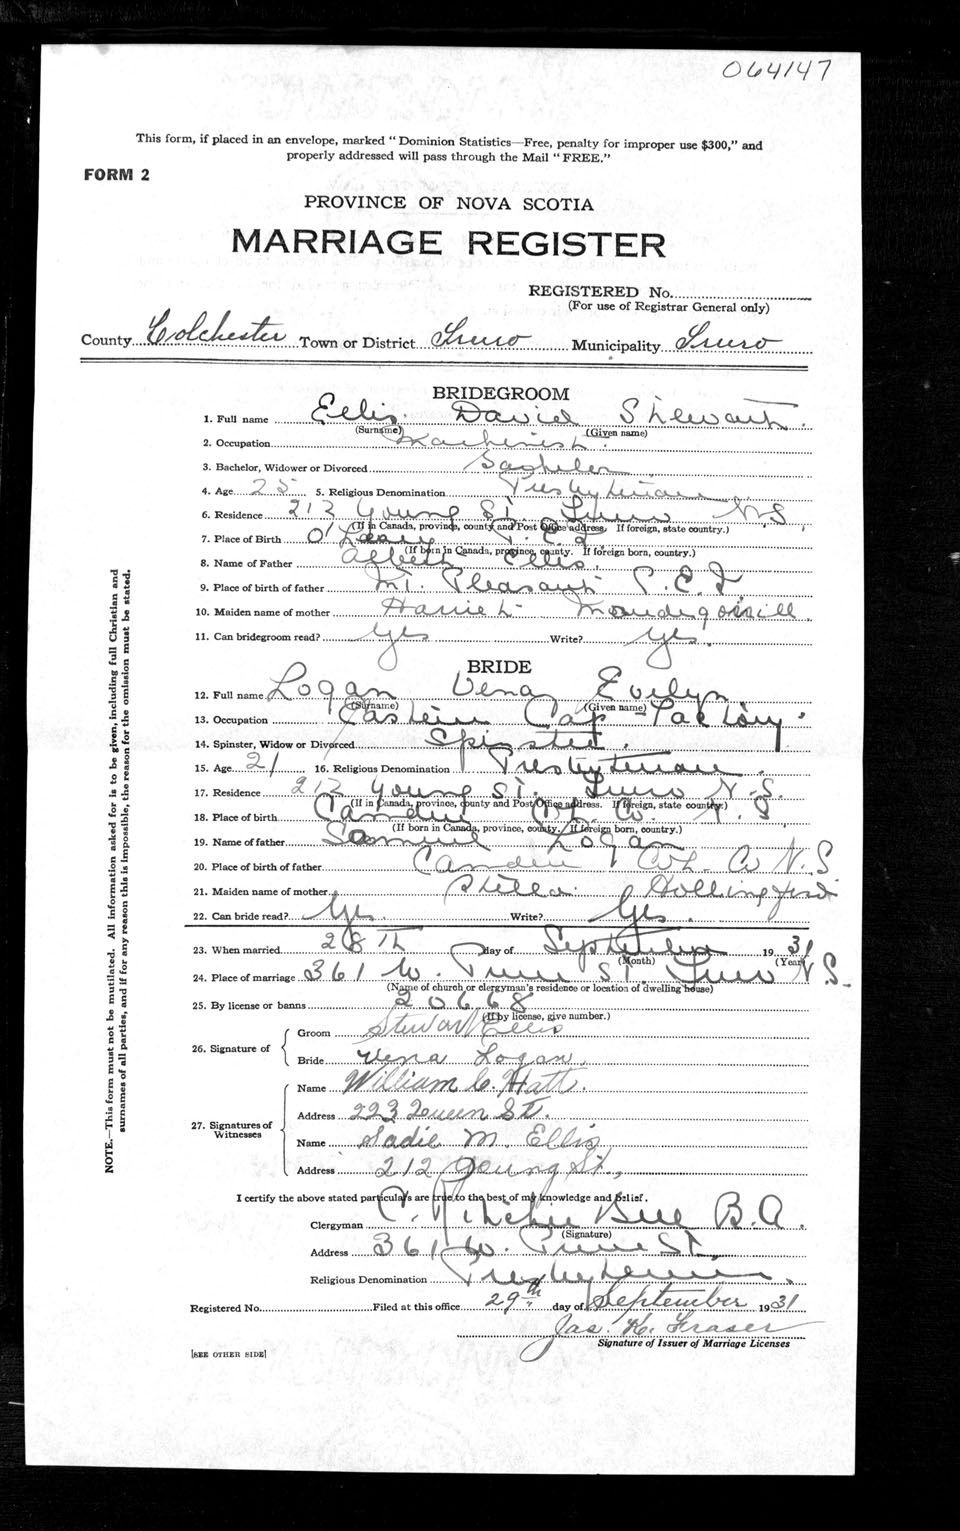 064147
This form, if placed in an envelope, marked "Dominion Statistics—Free, penalty for improper use $300," and
properly addressed will pass through the Mail "FREE."
FORM 2
PROVINCE OF NOVA SCOTIA
MARRIAGE REGISTER
REGISTERED No.
(For use of Registrar General only)
County Colchester Town or District Truro Municipality Truro
BRIDEGROOM
1. Full name Ellis David Stewart.
(Surname) (Given name)
2. Occupation Machinist.
3. Bachelor, Widower or Divorced Bachelor
4. Age 25 5. Religious Denomination Presbyterian
6. Residence 212 Young St. Truro N.S.
(If in Canada, province, county and Post Office address. If foreign, state country.)
7. Place of Birth O'Leary P.E.I.
(If born in Canada, province, county. If foreign born, country.)
8. Name of Father Albert Ellis.
9. Place of birth of father Mt. Pleasant P.E.I.
10. Maiden name of mother Harriet
11. Can bridegroom read? Yes Write? Yes.
BRIDE
12. Full name Logan Vena Evelyn
(Surname) (Given name)
13. Occupation Eastern Cap Factory.
14. Spinster, Widow or Divorced Spinster.
15. Age 21 16. Religious Denomination Presbyterian.
17. Residence 212 Young St. Truro N.S.
(If in Canada, province, county and Post Office address. If foreign, state country.)
18. Place of birth Camden Col. Co. N.S
(If born in Canada, province, county. If foreign born, country.)
19. Name of father Samuel Logan
20. Place of birth of father Camden Col. Co N.S.
21. Maiden name of mother Stella
22. Can bride read? Yes. Write? Yes.
23. When married 28th day of September 1931
(Month) (Year)
24. Place of marriage 361 W. Prince St. Truro N.S.
(Name of church or clergyman's residence or location of dwelling house)
25. By license or banns 20668
(If by license, give number.)
26. Signature of
Groom Stewart Ellis
Bride Vena Logan.
27. Signatures of Witnesses
Name William C. Hatt.
Address 223 Queen St.
Name Sadie M. Ellis
Address 212 Young St.,
I certify the above stated particulars are true to the best of my knowledge and belief.
Clergyman C. Ritchie Bell B.A.
(Signature)
Address 361 W. Prince St.
Religious Denomination Presbyterian.
Registered No. Filed at this office 29th day of September 1931
Jas. K. Fraser
Signature of Issuer of Marriage Licenses
[SEE OTHER SIDE]
NOTE.—This form must not be mutilated. All information asked for is to be given, including full Christian and
surnames of all parties, and if for any reason this is impossible, the reason for the omission must be stated.